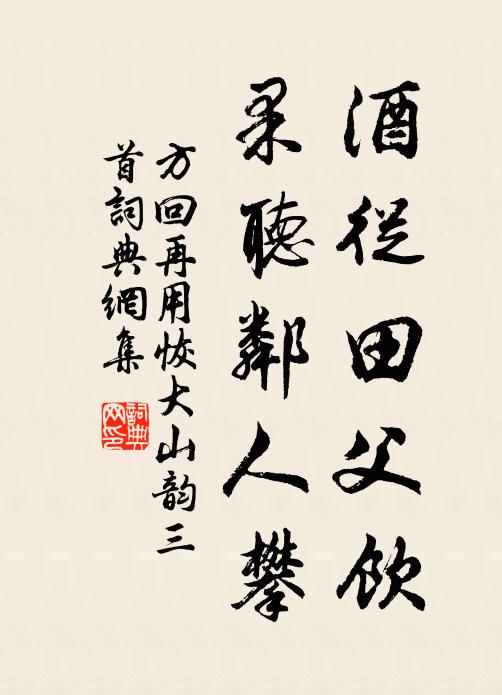 酒從田父飲
果聽鄰人攀
方回再用恢大山韵三
首詞典網集
詞典網印